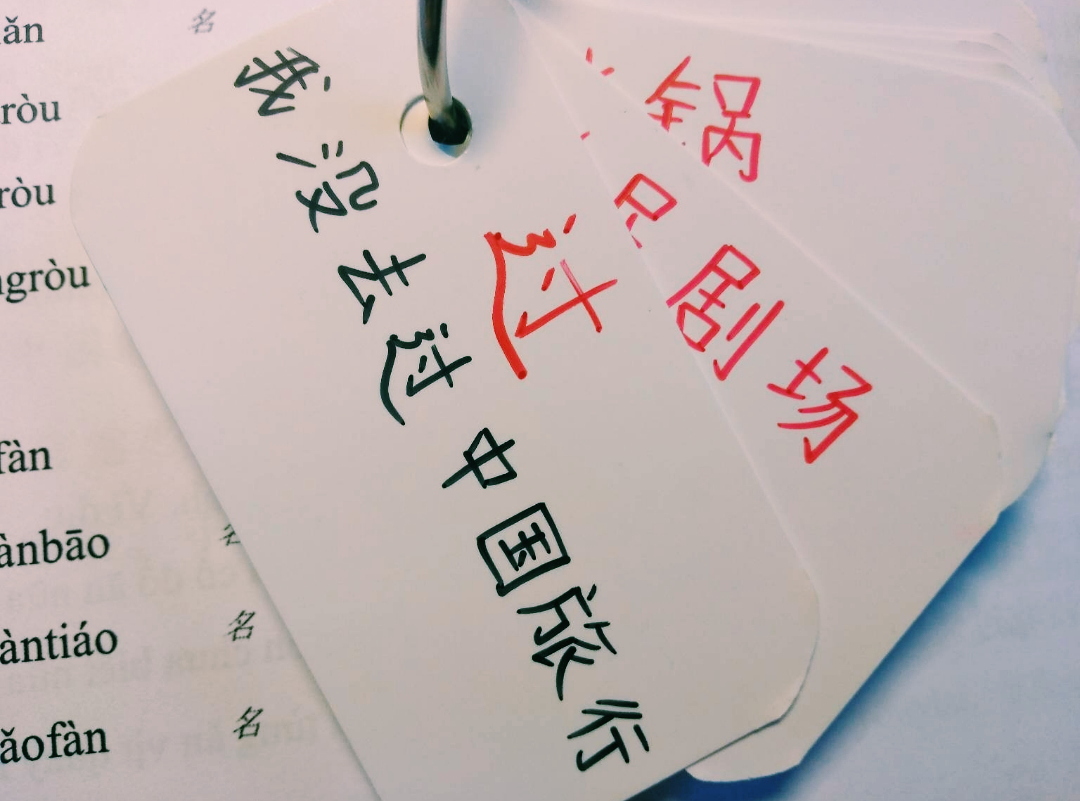 ăn 名
ròu
ròu
gròu
fàn
ànbāo 名
àntiáo 名
ăofàn 名
过
我没去过中国旅行
剧场
锅